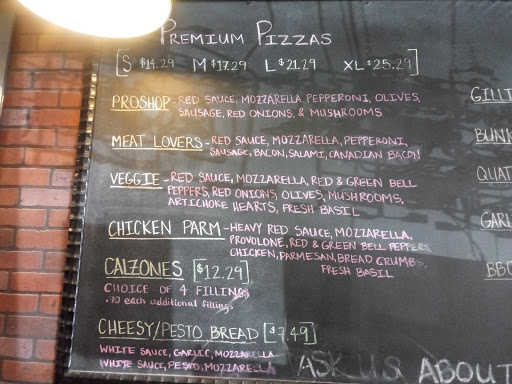 PREMIUM PIZZAS
[S $14.29 M $17.29 L $21.29 XL $25.29]
PROSHOP - RED SAUCE, MOZZARELLA, PEPPERONI, OLIVES,
SAUSAGE, RED ONIONS, & MUSHROOMS
MEAT LOVERS - RED SAUCE, MOZZARELLA, PEPPERONI,
SAUSAGE, BACON, SALAMI, CANADIAN BACON
VEGGIE - RED SAUCE, MOZZARELLA, RED & GREEN BELL
PEPPERS, RED ONIONS, OLIVES, MUSHROOMS,
ARTICHOKE HEARTS, FRESH BASIL
CHICKEN PARM - HEAVY RED SAUCE, MOZZARELLA,
PROVOLONE, RED & GREEN BELL PEPPERS,
CHICKEN, PARMESAN, BREAD CRUMBS,
FRESH BASIL
CALZONES [$12.29]
CHOICE OF 4 FILLINGS
.70 each additional fillings
CHEESY/PESTO BREAD [$7.49]
WHITE SAUCE, GARLIC, MOZZARELLA
WHITE SAUCE, PESTO, MOZZARELLA
ASK US ABOUT
GILL
QUAT
GARL
BBQ